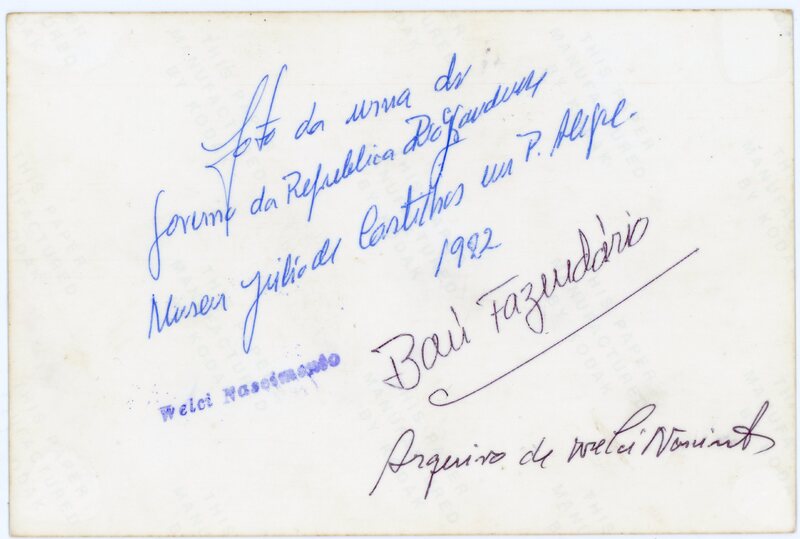 Foto da urna do
Governo da Republica Riograndense
Museu Julio de Castilhos em P. Alegre.
1982
Baú Fazendário
Welci Nascimento
Arquivo de Welci Nascimento